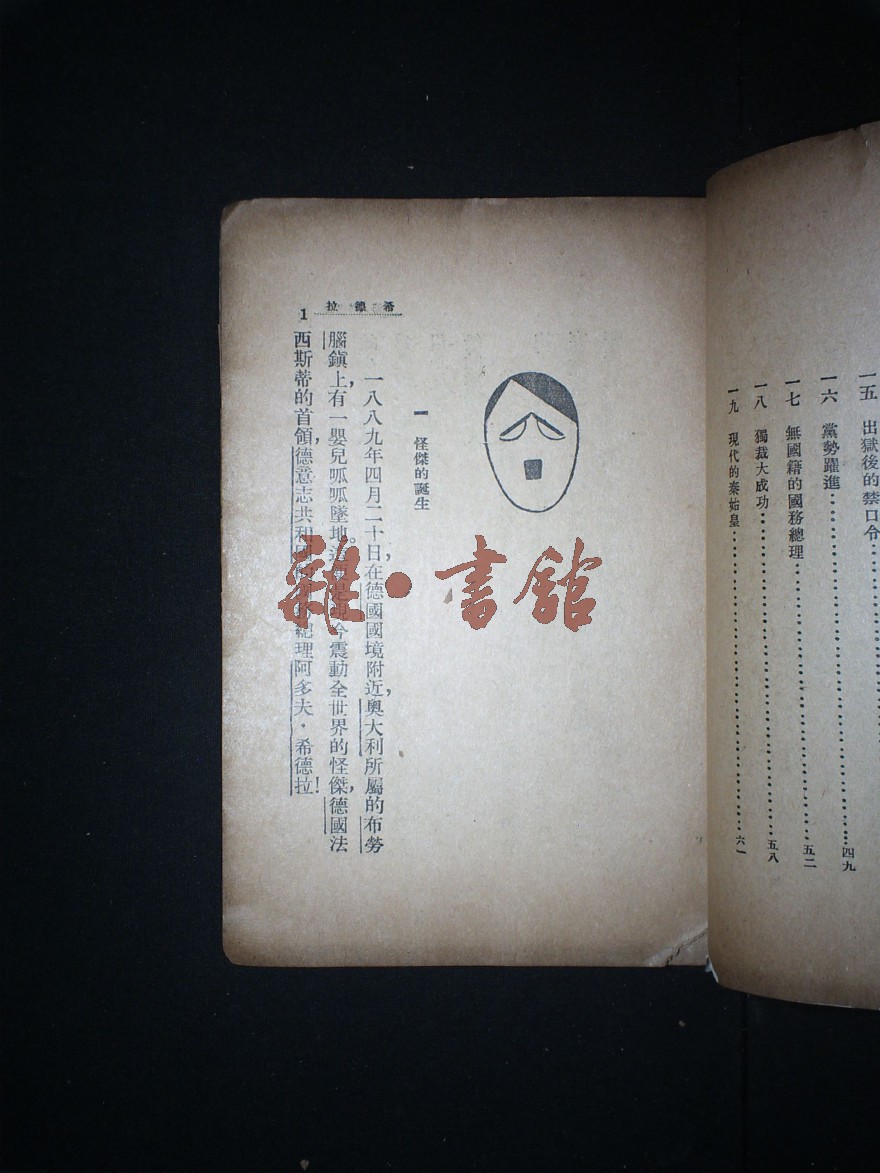 一五　出獄後的禁口令
一六　黨勢躍進…………四九
一七　無國籍的國務總理…………五二
一八　獨裁大成功…………五八
一九　現代的秦始皇…………六一
希德拉
1
一　怪傑的誕生
一八八九年四月二十日，在德國國境附近，奧大利所屬的布勞
腦鎮上，有一嬰兒呱呱墜地。這便是現今震動全世界的怪傑，德國法
西斯蒂的首領，德意志共和國的國務總理阿多夫・希德拉！
雜・書館